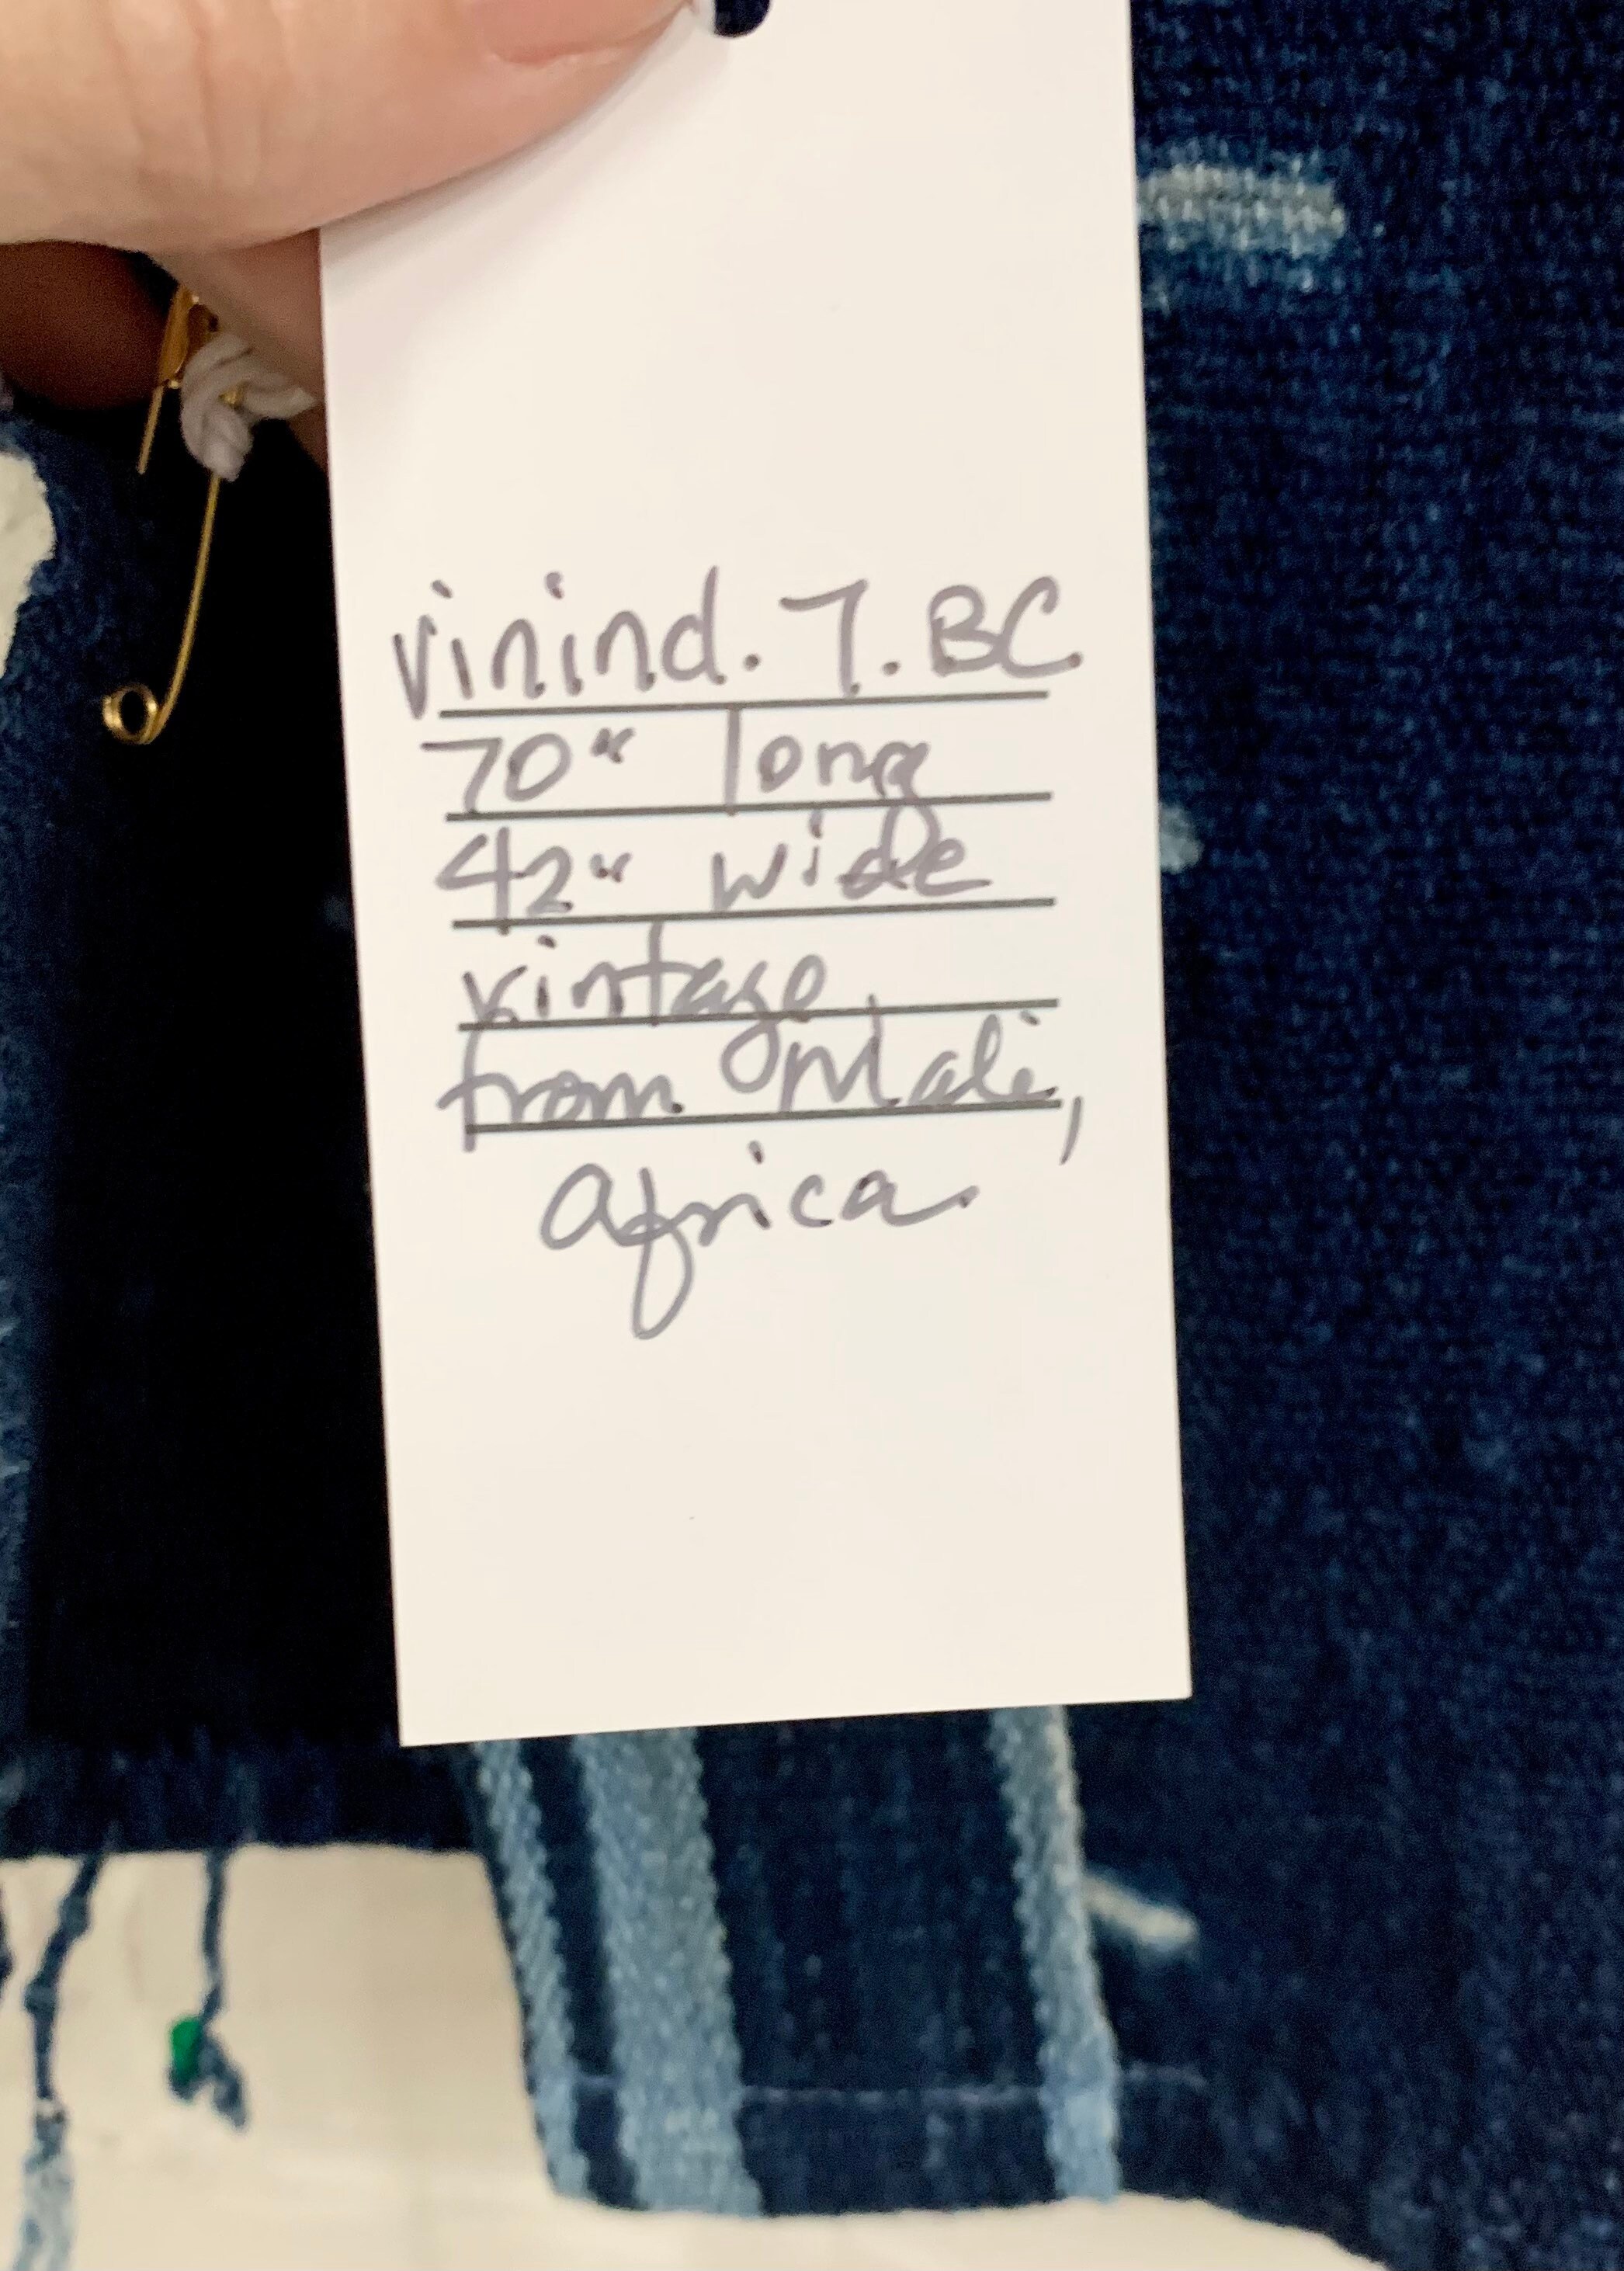 vinind. 7. BC.
70" long
42" wide
vintage
from Mali,
africa.